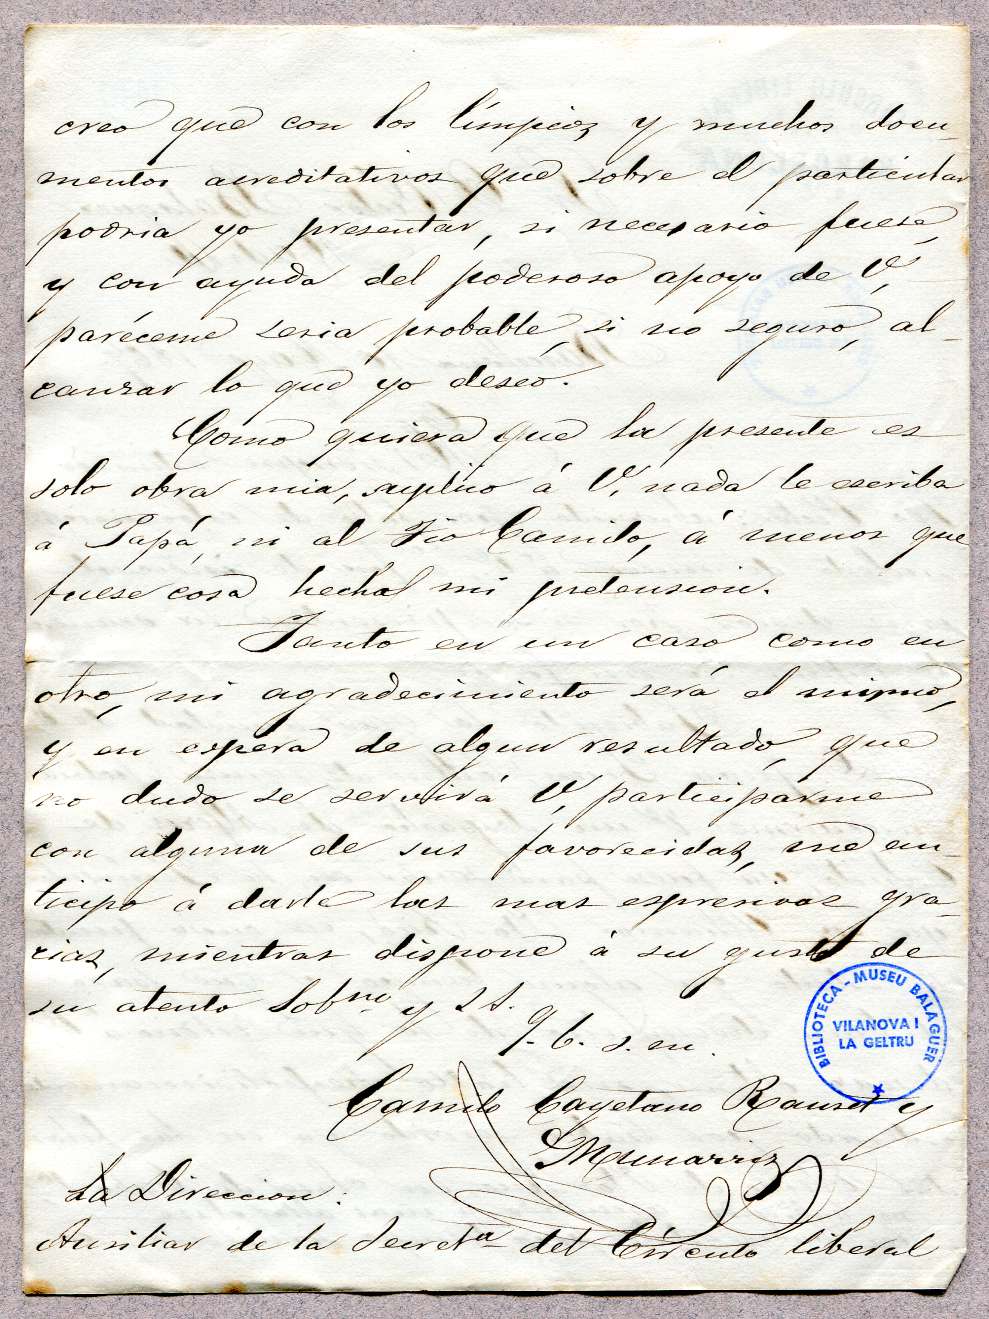 creo que con los límpios y muchos docu-
mentos acreditativos que sobre el particular
podria yo presentar, si necesario fuese,
y con ayuda del poderoso apoyo de V,
paréceme seria probable, si no seguro, al-
canzar lo que yo deseo.
Como quiera que la presente es
solo obra mia, suplico á V. nada le escriba
á Papá, ni al Tio Camilo, á menos que
fuese cosa hecha mi pretension.
Tanto en un caso como en
otro, mi agradecimiento será el mismo,
y en espera de algun resultado, que
no dudo se servirá V, participarme
con alguna de sus favorecidas, me an-
ticipo á darle las mas espresivas gra-
cias, mientras dispone á su gusto de
su atento Sobno y S. S.
q. b. s. m.
Camilo Cayetano Rauret y
Munarriz
La Direccion:
Ausiliar de la Secreta del Círculo liberal
BIBLIOTECA - MUSEU BALAGUER
VILANOVA I
LA GELTRU